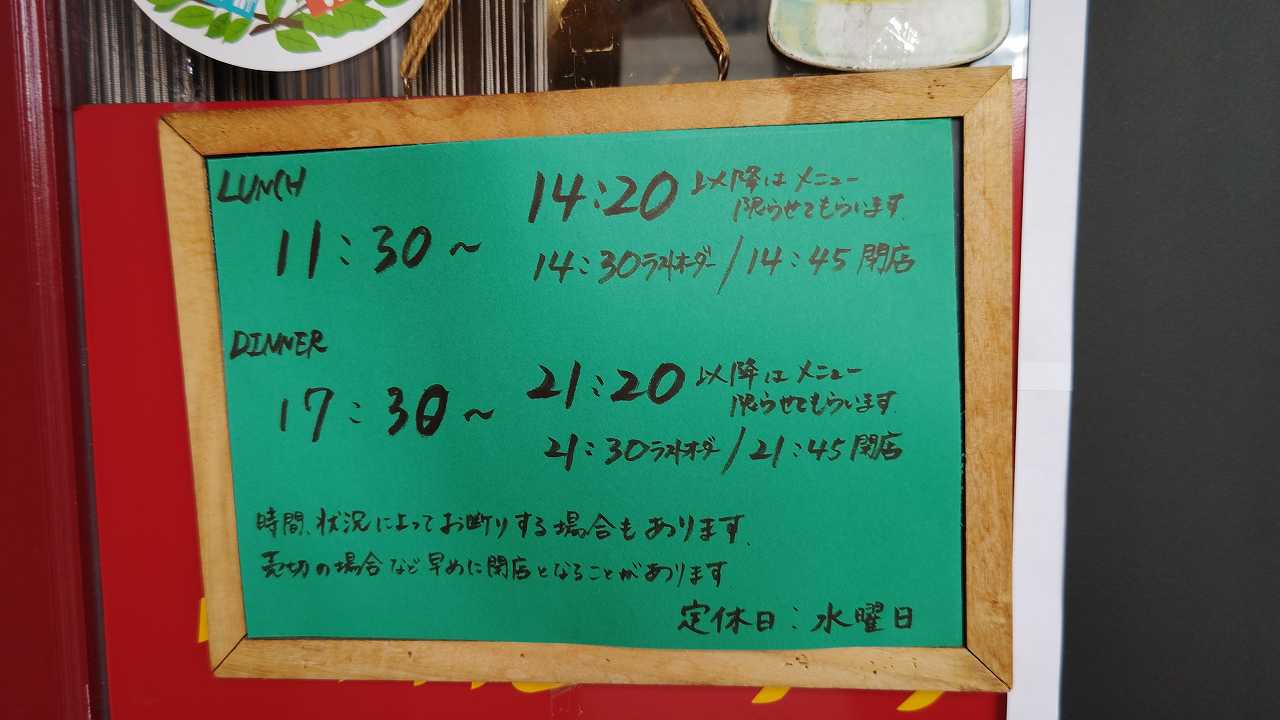 LUNCH
11:30~
14:20 以降はメニュー
限らせてもらいます.
14:30ラストオーダー/14:45 閉店
DINNER
17:30~
21:20 以降はメニュー
限らせてもらいます.
21:30ラストオーダー/21:45 閉店
時間、状況によってお断りする場合もあります.
売切の場合など早めに閉店となることがあります
定休日:水曜日